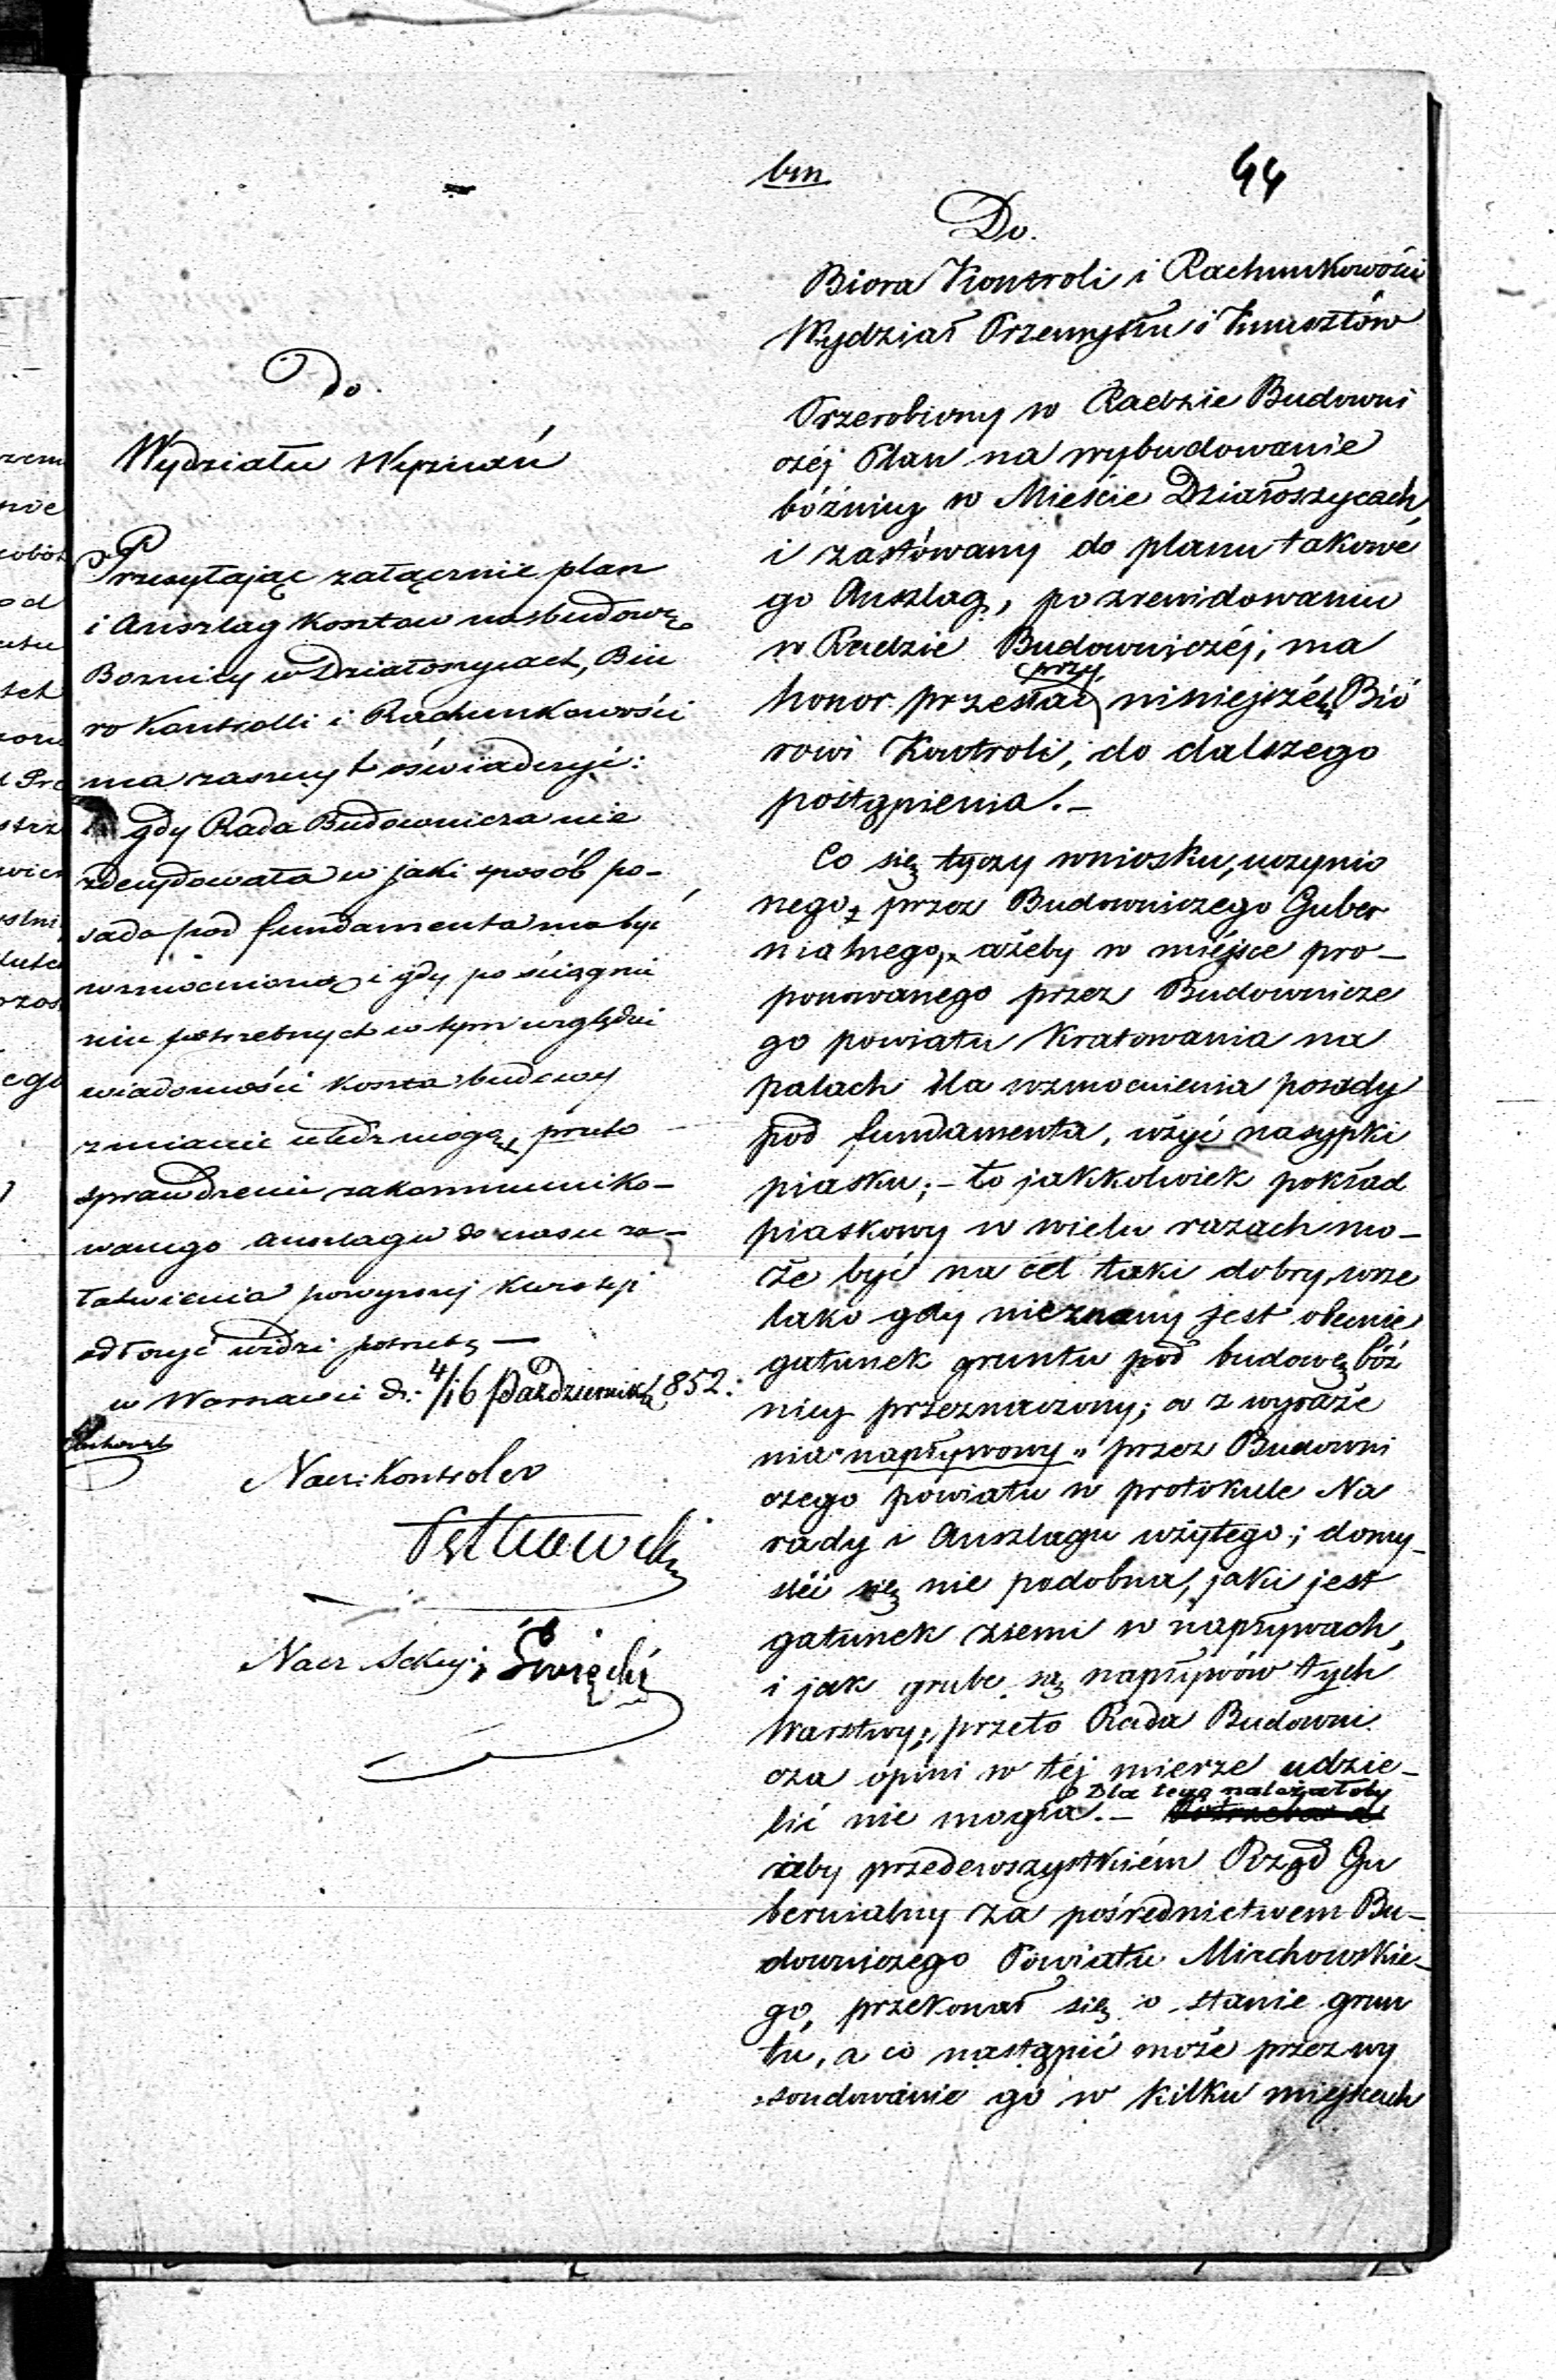 bm
44
Do.
Biora Kontroli i Rachunkowości
Wydział Przemysłu i Kunsztów
Przerobiony w Radzie Budowni
czéj Plan na wybudowanie
bóżnicy w Mieście Działoszycach,
i zastówany do planu takowe
go Anszlag, po zrewidowaniu
w Radzie Budowniczéj, ma
honor przesłać przy niniejszém Bió
rowi Kontroli, do dalszego
postąpienia.–
Co się tyczy wniosku, uczynio
nego przez Budowniczego Guber
nialnego, ażeby w miéjsce pro–
ponowanego przez Budownicze
go powiatu kratowania na
palach dla wzmocnienia posady
pod fundamenta, użyć nasypki
piasku;– to jakkolwiek pokład
piaskowy w wielu razach mo–
że być na cel taki dobry, wsze
lako gdy nieznany jest obecnie
gatunek gruntu pod budowę bóż
nicy przeznaczony; a z wyraże
nia "napływowy" przez Budowni
czego powiatu w protokule Na
rady i Anszlagu użytego; domy–
śléć się nie podobna, jaki jest
gatunek ziemi w napływach,
i jak grube są napływów tych
Warstwy; przeto Rada Budowni
cza opini w téj mierze udzie–
lić nie mogła.– Dla tego należałoby
aby przedewszystkiém Rząd Gu
bernialny za pośrednictwem Bu–
downiczego Powiatu Miechowskie–
go, przekonał się o stanie grun
tu, a co nastąpić może przez wy
sondowanie go w kilku miejscach
Do
Wydziału Wyznań
Przesyłając załącznie plan
i Anszlag kosztów na budowę
Boznicy w Działoszycach, Biu
ro Kontrolli i Rachunkowości
ma zaszczyt oświadczyć:
gdy Rada Budownicza nie
zdecydowała w jaki sposób po–
sada pod fundamenta ma być
wzmocniona i gdy po ściągnię
niu potrzebnych w tym względzie
wiadomości koszta budowy
zmianie uledz mogą, przeto
sprawdzenie zakommuniko–
wanego anszlagu do czasu za–
łatwienia powyższej kwestyi
odłożyć widzi potrzebę —
w Warszawie d: 4/16 Października 852.
Nacz: Kontroler
Nacz Sekcyi Święcki